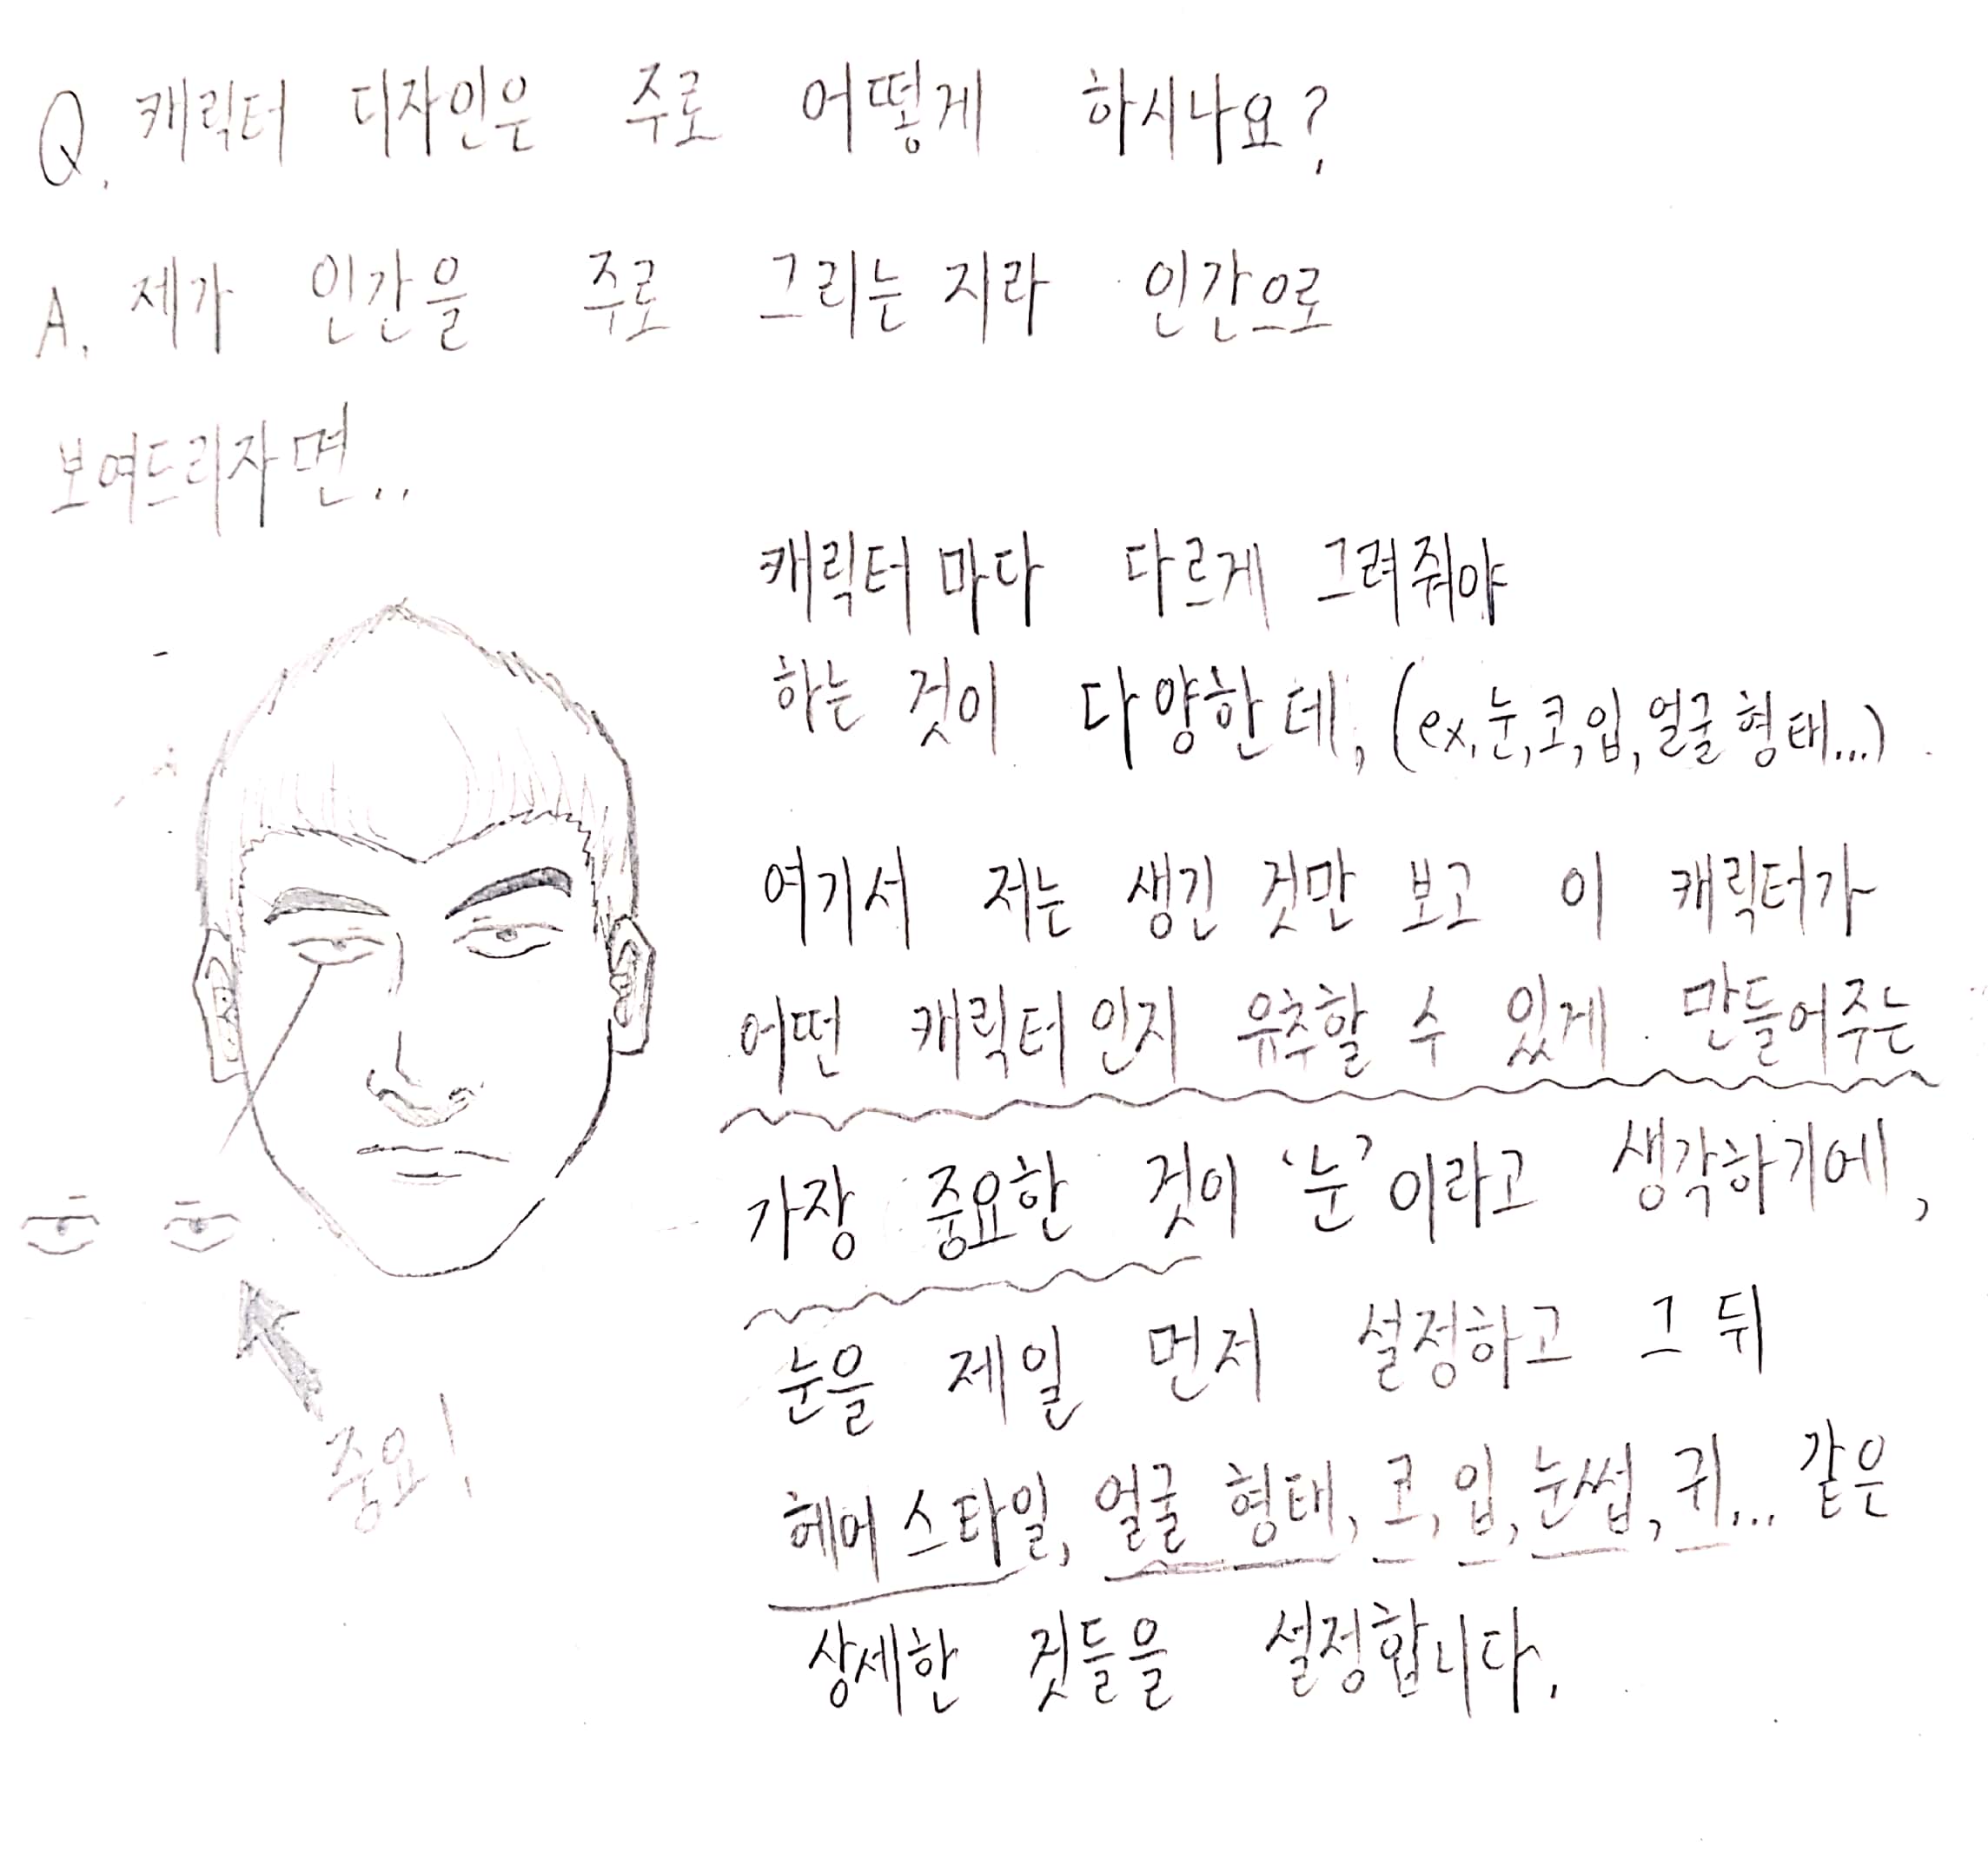 Q. 캐릭터 디자인은 주로 어떻게 하시나요?
A. 제가 인간을 주로 그리는 지라 인간으로
보여드리자면..
캐릭터마다 다르게 그려줘야
하는 것이 다양한데, (ex,눈,코,입,얼굴형태...)
여기서 저는 생긴 것만 보고 이 캐릭터가
어떤 캐릭터인지 유추할 수 있게 만들어주는
가장 중요한 것이 '눈'이라고 생각하기에,
눈을 제일 먼저 설정하고 그 뒤
헤어스타일, 얼굴 형태, 코, 입, 눈썹, 귀... 같은
상세한 것들을 설정합니다.
중요!